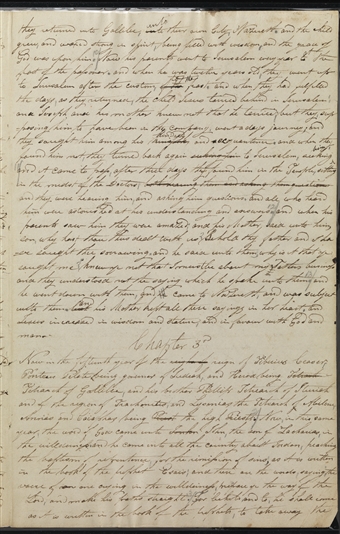 they returned into Galilee, into their own City, Nazareth, and the child
grew, and waxed strong in spirit, being filled with wisdom, and the grace of
God was upon him, Now his parents went to Jerusalem every year at the
feast of the passover, and when he was twelve years old, they went up
to Jerusalem after the custom, of the feast, and when they had fulfilled
the days, as they returned, the child Jesus tarried behind in Jerusalem
and Joseph and his mother knew not that he tarried, but they, sup
posing him to have been in the company, went a days journey, and
they saught him among his kinsfolk, and acquaintance, and when they
found him not, they turned back again to Jerusalem, seeking
and it came to pass, after three days they found him in the Temple, sitting
in the midst of the Doctors,
and they were hearing him, and asking him questions, and all who heard
him were astonished at his understanding and answers, and when his
parents saw him they were amazed, and his Mother, said unto him,
son, why hast thou thus dealt with us, behold thy father and I have
saught thee sorrowing, and he said unto them, why is it that ye
saught me, knew ye not that I must be about my fathers business
and they understood not the saying which he spoke unto them, and
he went down with them, and came to Nazareth, and was subject
unto them, and his Mother kept all these sayings in her heart, and
Jesus increased in wisdom and stature, and in favour with God and
man
Chapter 3d
Now in the fifteenth year of the reign of Tiberius Ceasar
Pontius Pilate being governor of Judea, and Herod being
Tetrarch of Gallilee, and his brother Phillip Tetrarch of
and of the region of and Lysanias the Tetrarch of Abilene
Annias and Caiaphas being the high Priests, Now in the same
year, the word of God came unto John, the son of Zacharias, in
the wilderness, and he came into all the country about Jordan, preaching
the baptism of repentance, for the remission of sins, as it is written
in the book of the prophet Esaias, and these are the words, saying, the
voice of one crying in the wilderness, prepare ye the way of the
Lord, and make his paths straight, For behold and lo, he shall come
as it is written in the book of the prophets, to take away the